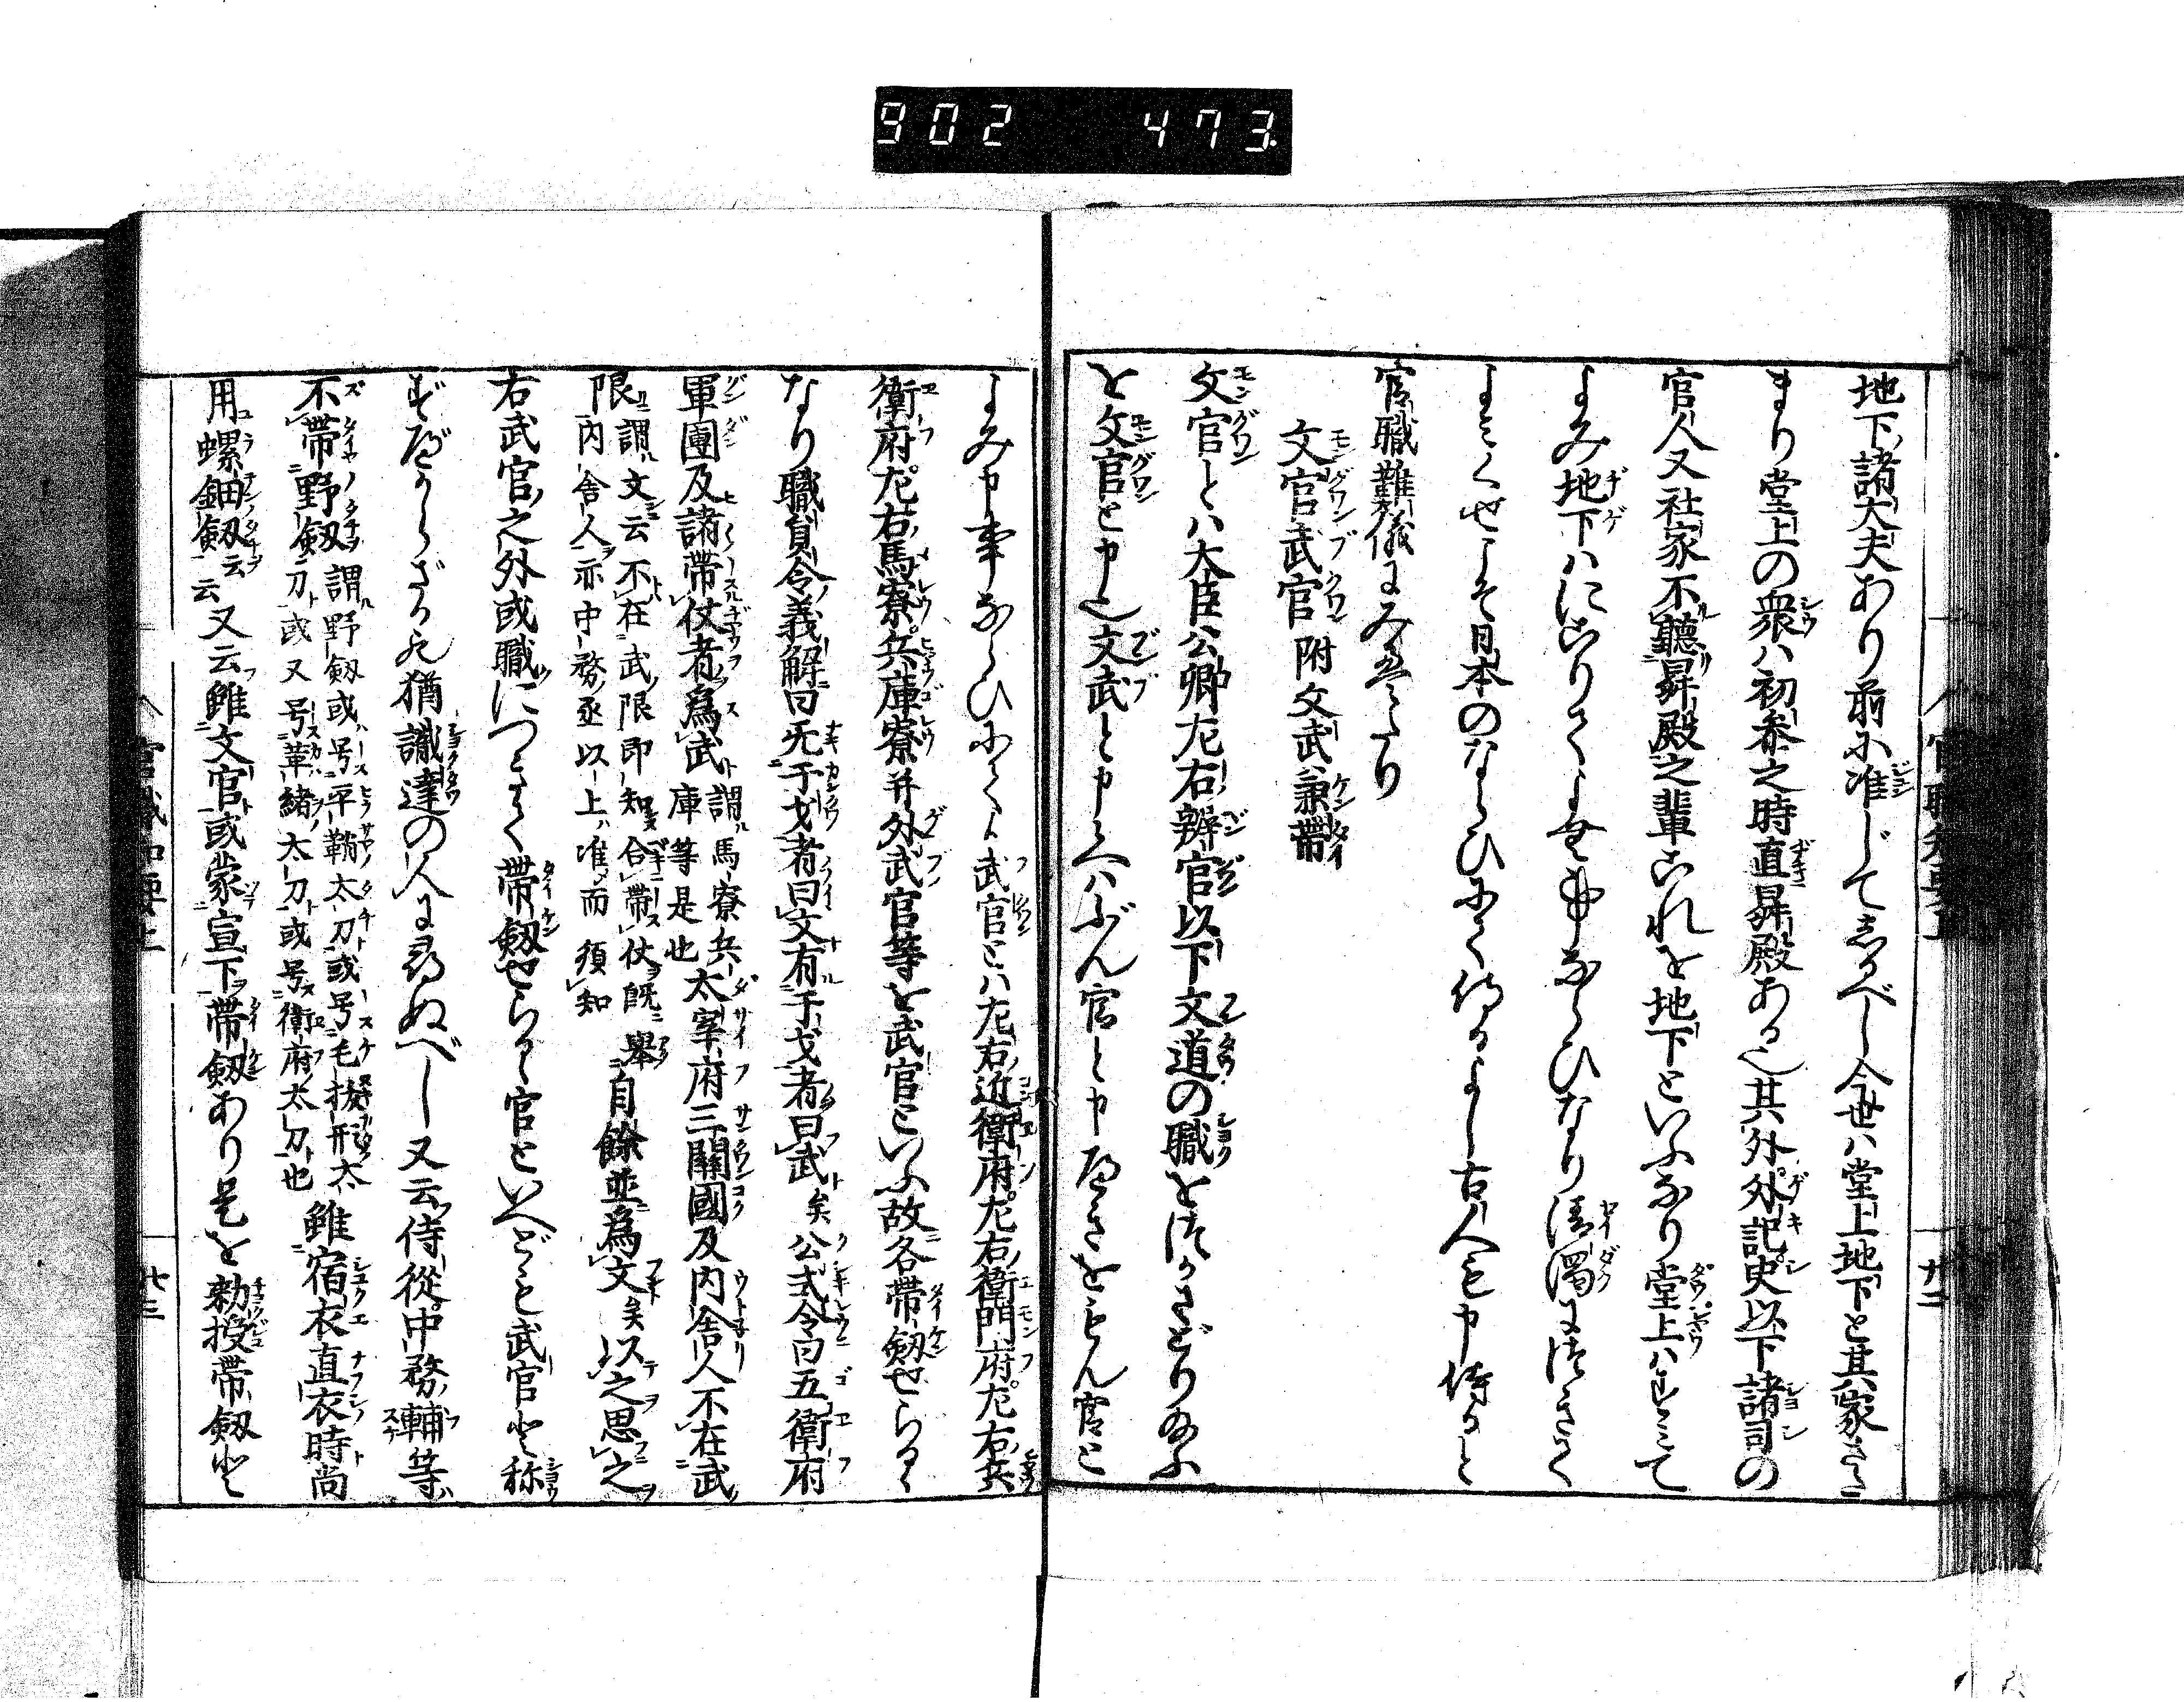 902 473
地下ノ諸大夫あり前に准じて志るべし今世ハ堂上地下と其家さだ
まり堂上の衆ハ初参之時直昇殿ある也其外外記史以下諸司の
官人又社家不聽昇殿之輩これを地下といふなり堂上ハすミて
よみ地下ハにごりてよむ事ならひなり清濁は
日本のならひにて侍るよし古人も申侍ると
官職難儀にみえたり
文官武官 附文武兼帶
文官とハ大臣公卿左右辨官以下文道の職をつかさどり給ふ
を文官と申也文武と申ハぶん官と申べきをもん官と
よみ申事ならひにて武官とハ左右近衞府左右衞門府左右兵
衞府左右馬寮兵庫寮并外武官等を武官といふ故各帶劔せらるゝ
なり職員令義解曰无干戈者曰文有干戈者曰武矣公式令曰五衞府
軍團及諸帶仗者爲武謂馬寮兵庫等是也太宰府三關國及内舎人不在武
限謂文云不在武限即知合帶仗既内舎人亦中務丞以上准而須知舉自餘並爲文矣以之思之
右武官之外或職につきて帶劔せらるゝ官といへども武官と称
ずべからざる猶識達の人に尋ぬべし又云侍從中務輔等
不帶野劔謂野劔或号平鞘太刀或号毛拔形太刀或又号革緒太刀或号衞府太刀也雖宿衣直衣時尚
用螺鈿劔云云又云雖文官或蒙宣下帶劔あり是を勅授帶劔と
廿二
廿三